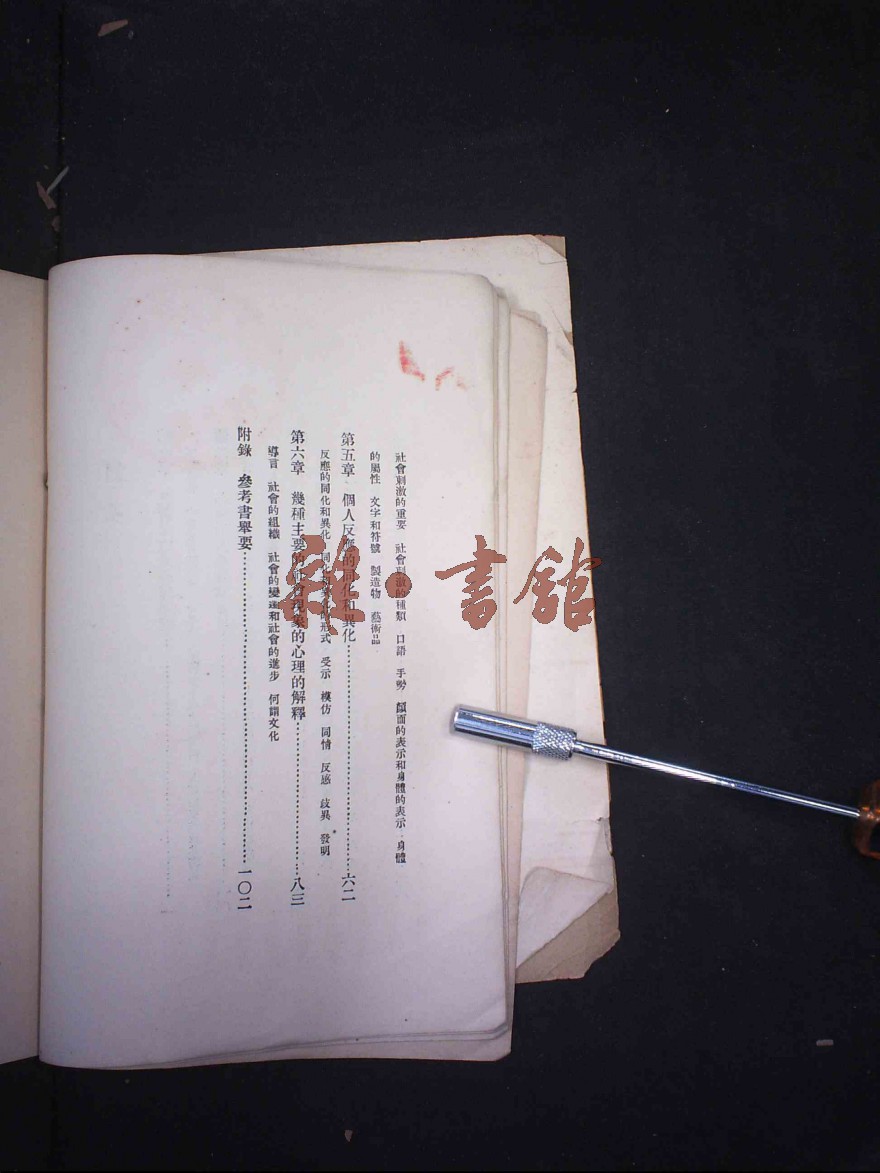 社會刺激的重要　社會刺激的種類　口語　手勢　顏面的表示和身體的表示　身體
的屬性　文字和符號　製造物　藝術品
第五章　個人反應的同化和異化…………六二
反應的同化和異化　同化和異化的形式　受示　模仿　同情　反感　歧異　發明
第六章　幾種主要的社會現象的心理的解釋…………八三
導言　社會的組織　社會的變遷和社會的進步　何謂文化
附錄　參考書舉要…………一〇二
雜·書館